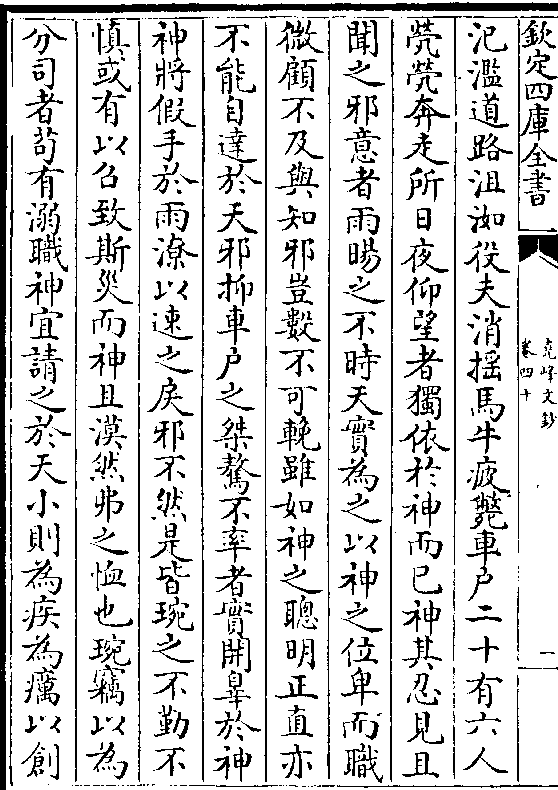 欽定四庫全書
堯峰文鈔
卷四十
一
汜濫道路沮洳役夫消揺馬牛疲斃車戶二十有六人
煢煢奔走所日夜仰望者獨依於神而已神其忍見且
聞之邪意者雨暘之不時天實為之以神之位卑而職
微顧不及與知邪豈數不可輓雖如神之聰明正直亦
不能自達於天邪抑車戶之桀驁不率者實開辠於神
神將假手於雨潦以速之戾邪不然是皆琬之不勤不
慎或有以召致斯災而神且漠然弗之恤也琬竊以為
分司者苟有溺職神宜請之於天小則為疾為癘以創